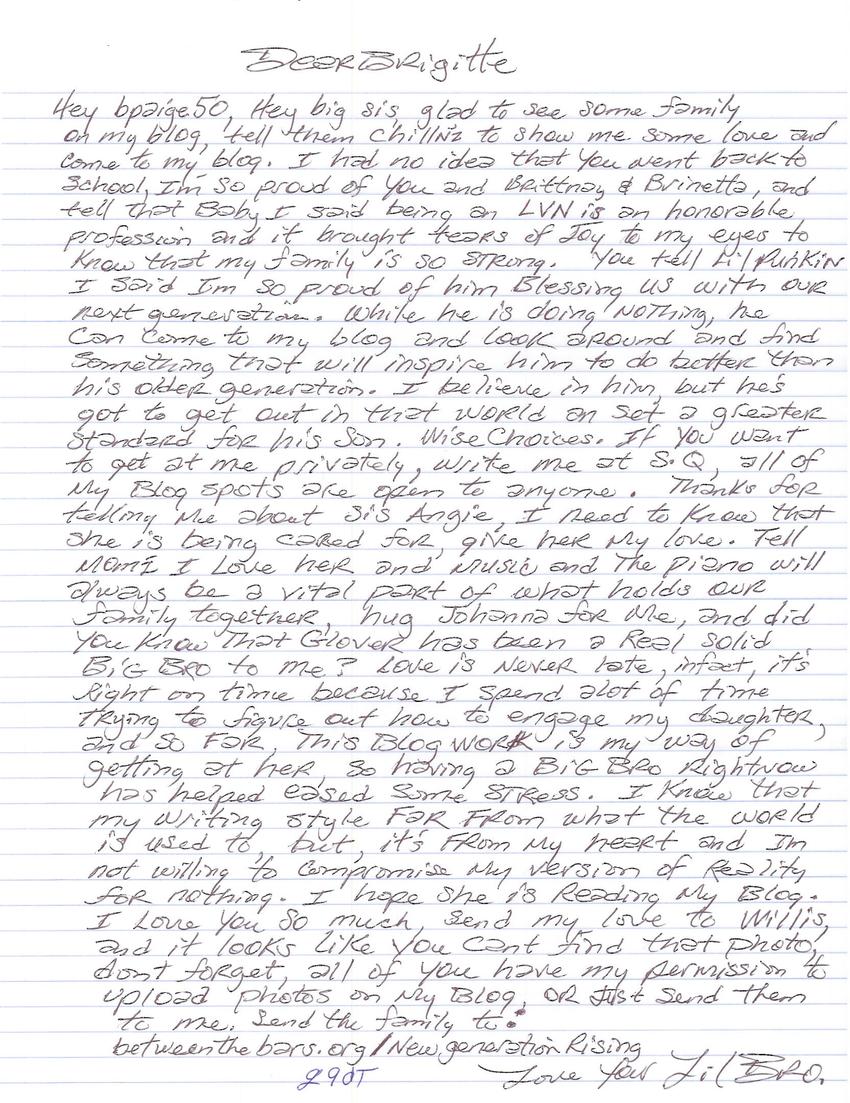 Dear Brigitte
Hey bpaige50, Hey big sis, glad to see some family
on my blog, tell them chillNz to show me some love and
come to my blog. I had no idea that You went back to
School, I'm so proud of You and Brittnay & Brinetta, and
tell that Baby I said being an LVN is an honorable
profession and it brought tears of Joy to my eyes to
Know that my family is so STRONG. You tell Lil PunKiN
I said Im so proud of him Blessing us with our
next generation. While he is doing NOTHING, he
can come to my blog and look around and find
something that will inspire him to do better than
his older generation. I believe in him, but he's
got to get out in that world an set a greater
standard for his Son. Wise Choices. If You want
to get at me privately, write me at S.Q, all of
My Blog spots are open to anyone. Thanks for
telling Me about Sis Angie, I need to Know that
she is being cared for, give her My love. Tell
MOMI I Love her and Music and The piano will
always be a vital part of what holds our
family together, hug Johanna for Me, and did
You Know That Glover has been a Real Solid
BiG BRO to me? Love is NEVER late, infact, it's
Right on time because I spend alot of time
TRying to figure out how to engage my daughter,
and So FAR, This Blog WORK is my way of
getting at her, so having a BiG BRO Rightnow
has helped eased Some STRess. I Know that
my writing style FAR FROM what the world
is used to, but, it's FROM My heart and Im
not willing to Compromise My version of Reality
for nothing. I hope she is Reading My Blog.
I Love You So much, send my love to Willis,
and it looks like You Cant find that photo,
dont forget, all of you have my permission to
upload photos on My Blog, OR Just Send them
to me. Send the family to:
betweenthebars.org/New generation Rising
Love Your Lil BRO.